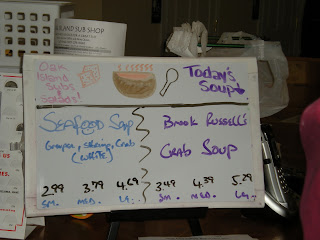 GRAND SUB SHOP
Oak
Island
Subs
Salads!
Today's
Soup
SEAFOOD Soup
Grouper, Shrimp, Crab
(WHITE)
2.99 3.79 4.69
SM. MED. LG.
Brook Russell's
CRAB SOUP
3.49 4.39 5.29
SM. MED. LG.